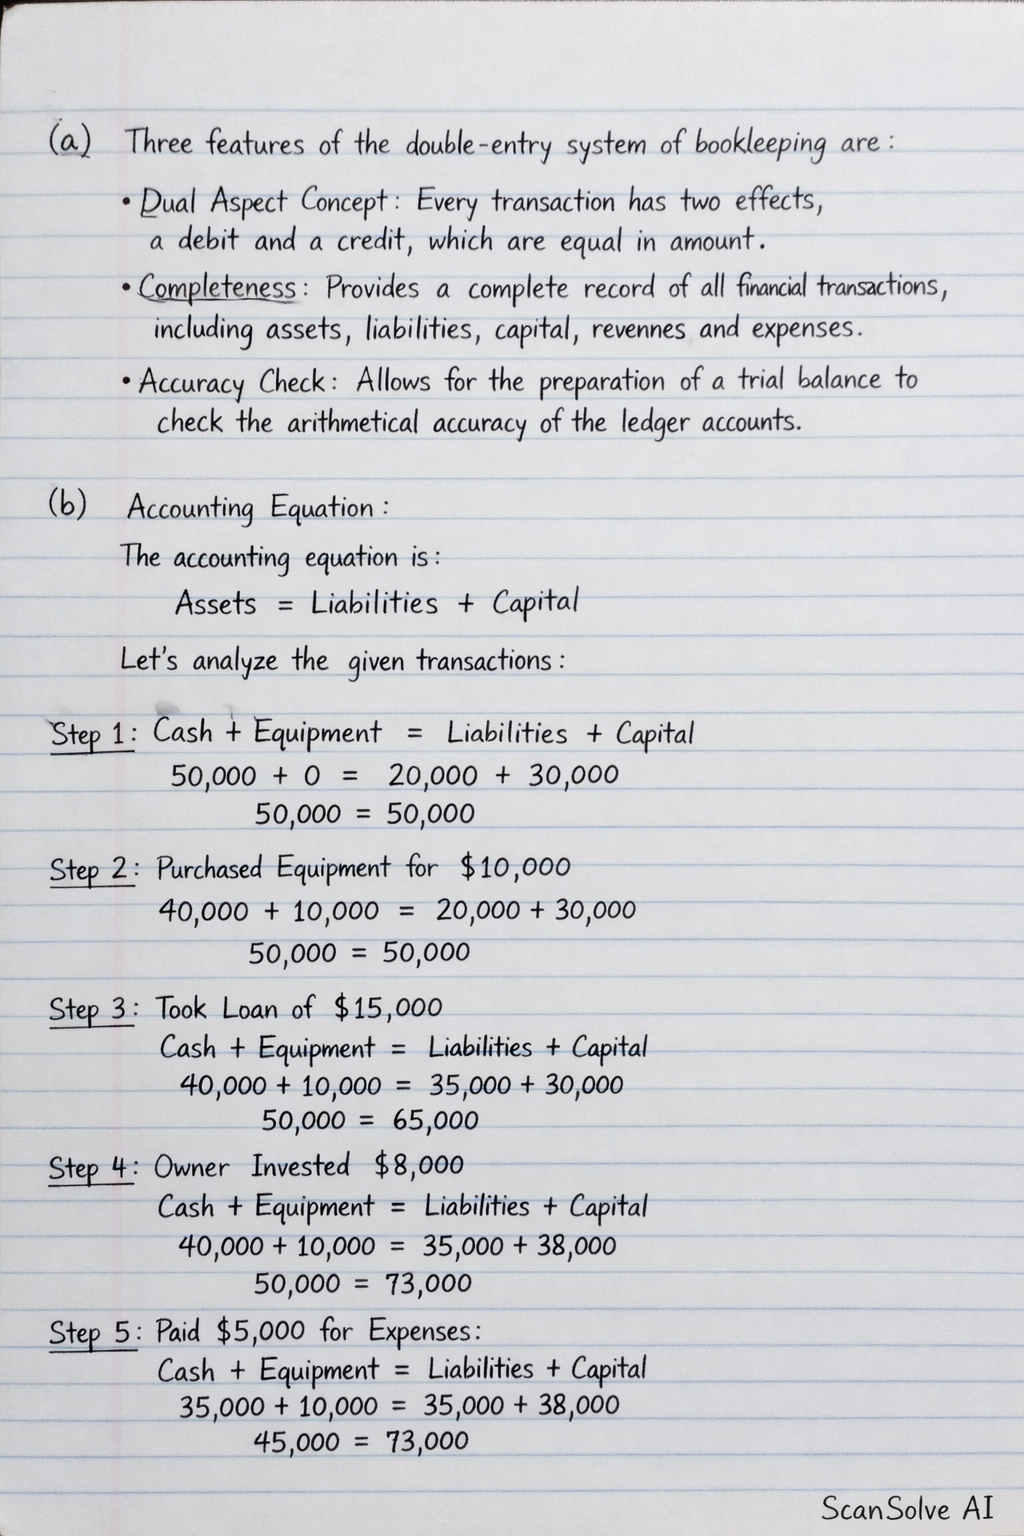 (a) Three features of the double-entry system of bookleeping are:
• Dual Aspect Concept: Every transaction has two effects,
a debit and a credit, which are equal in amount.
• Completeness: Provides a complete record of all financial transactions,
including assets, liabilities, capital, revennes and expenses.
• Accuracy Check: Allows for the preparation of a trial balance to
check the arithmetical accuracy of the ledger accounts.
(b) Accounting Equation:
The accounting equation is:
Assets = Liabilities + Capital
Let's analyze the given transactions:
Step 1: Cash + Equipment = Liabilities + Capital
50,000 + 0 = 20,000 + 30,000
50,000 = 50,000
Step 2: Purchased Equipment for $10,000
40,000 + 10,000 = 20,000 + 30,000
50,000 = 50,000
Step 3: Took Loan of $15,000
Cash + Equipment = Liabilities + Capital
40,000 + 10,000 = 35,000 + 30,000
50,000 = 65,000
Step 4: Owner Invested $8,000
Cash + Equipment = Liabilities + Capital
40,000 + 10,000 = 35,000 + 38,000
50,000 = 73,000
Step 5: Paid $5,000 for Expenses:
Cash + Equipment = Liabilities + Capital
35,000 + 10,000 = 35,000 + 38,000
45,000 = 73,000
ScanSolve AI